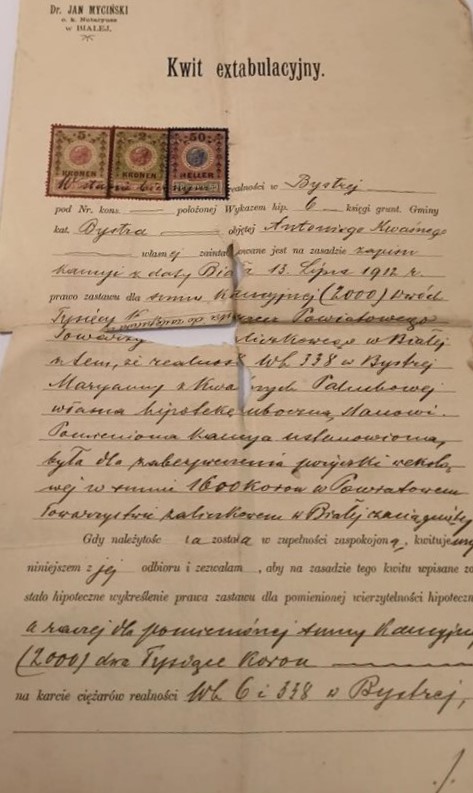 Dr. JAN MYCIŃSKI
c. k. Notaryusz
w BIAŁEJ
Kwit extabulacyjny.
5 2 50
KRONEN KRONEN HELLER
W stanie biernym realności w Bystrej
pod Nr. kons. — położonej Wykazem hip. 6 księgi grunt. Gminy
kat. Bystra objętej Antoniego Kwaśnego
własnej zainta owane jest na zasadzie zapisu
kaucyi z daty Bia 13. Lipca 1912 r.
prawo zastawu dla sumy kaucyjnej (2000) wród
Tysięcy K Powiatowego
Towarzy liczkowego w Białej
z tem, że realność Wh 338 w Bystrej
Maryanny z Kwa nych Paluchowej
własna hipotekę uboczną stanowi.
Pomieniona kaucya ustanowioną
była dla zabezpieczenia pożyczki wekslo
wej w sumie 1600 koron w Powiatowem
Towarzystwie zaliczkowem w Białej zaciągniętej
Gdy należytość ta została w zupełności zaspokojoną, kwituje
niniejszem z jej odbioru i zezwalam, aby na zasadzie tego kwitu wpisane zo
stało hipoteczne wykreślenie prawa zastawu dla pomienionej wierzytelności hipoteczn
a raczej dla pomienionej sumy kaucyjnej
(2000) dwa Tysiące Koron
na karcie ciężarów realności Wh 6 i 338 w Bystrej,
./.